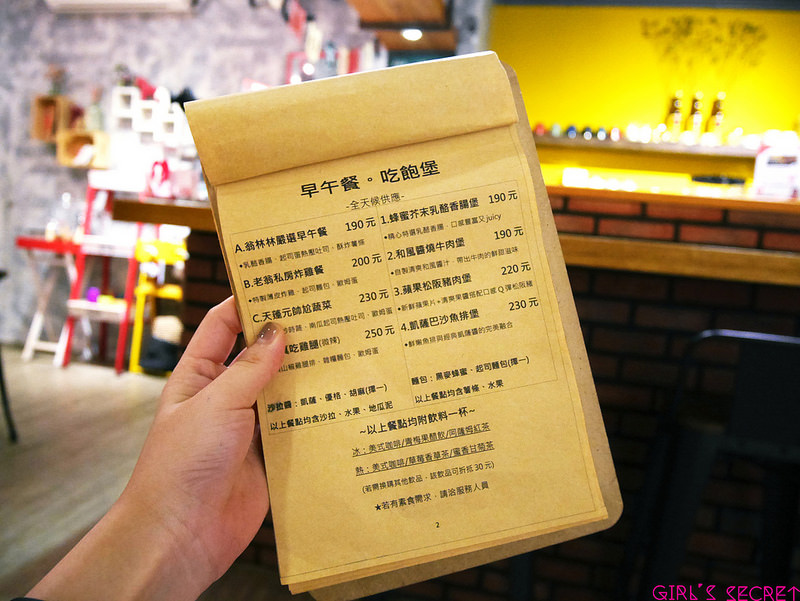 早午餐。吃飽堡
-全天候供應-
A.翁林林嚴選早午餐 190元
•乳酪香腸、起司蛋熱壓吐司、酥炸薯條
B.老翁私房炸雞餐 200元
•特製薄皮炸雞、起司麵包、歐姆蛋
C.天蓬元帥尬蔬菜 230元
時蔬、南瓜起司熱壓吐司、歐姆蛋
吃雞腿(微辣) 250元
山椒雞腿排、雜糧麵包、歐姆蛋
沙拉醬：凱薩、優格、胡麻(擇一)
以上餐點均含沙拉、水果、地瓜泥
1.蜂蜜芥末乳酪香腸堡 190元
•精心特選乳酪香腸，口感豐富又juicy
2.和風醬燒牛肉堡 190元
•自製清爽和風醬汁，帶出牛肉的鮮甜滋味
3.蘋果松阪豬肉堡 220元
•新鮮蘋果片、清爽果醬搭配口感Q彈松阪豬
4.凱薩巴沙魚排堡 230元
•鮮嫩魚排與經典凱薩醬的完美融合
麵包：黑麥蜂蜜、起司麵包(擇一)
以上餐點均含薯條、水果
~以上餐點均附飲料一杯~
冰：美式咖啡/青梅果醋飲/阿薩姆紅茶
熱：美式咖啡/草莓香草茶/蜜香甘菊茶
(若需換購其他飲品，該飲品可折抵30元)
★若有素食需求，請洽服務人員
2
GIRL'S SECRET